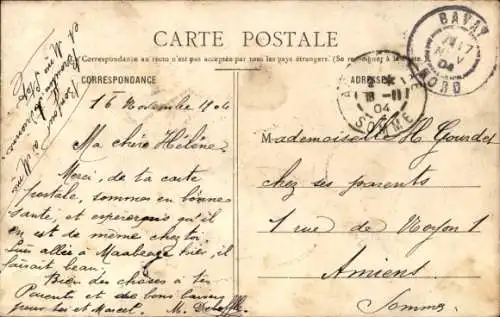 CARTE POSTALE
(La Correspondance au recto n'est pas acceptée par tous les pays étrangers. (Se renseigner à la Poste)
CORRESPONDANCE
ADRESSE
BAVAY
17
NOV
04
NORD
2
18-11
04
SOMME
16 Novembre 1904
Ma chère Hélène
Merci, de ta carte
postale, sommes en bonne
santé, et espérons qu'il
en est de même chez toi.
Suis allée à Maubeuge hier, il
faisait beau.
Bien des choses à tes
Parents et de bons baisers
pour toi et Marcel. M.
Mademoiselle H Gourdes
chez ses parents
1 rue de Noyon 1
Amiens
Somme